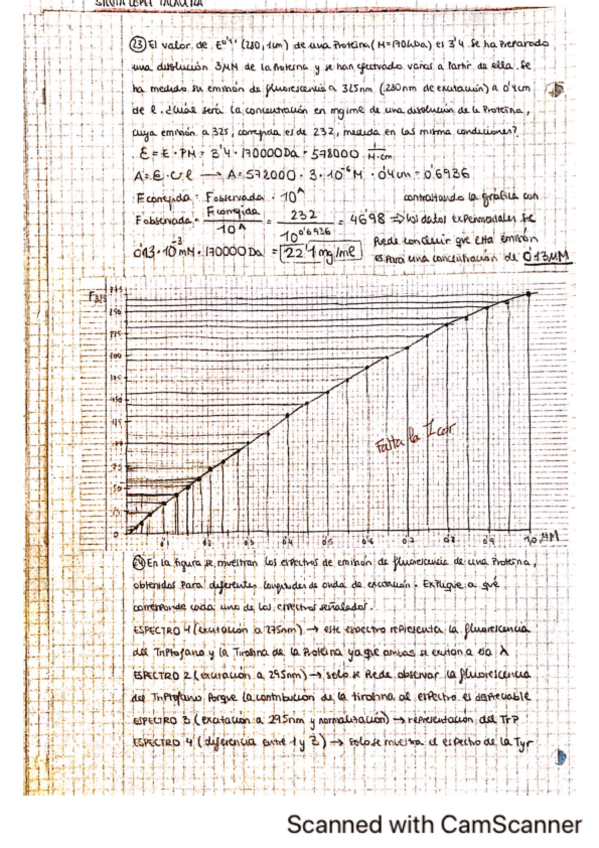 SILVIA LOPEZ TALAVERA
23 El valor de E^0'1% (280, 1cm) de una Proteína (M=170kDa) es 3'4. Se ha Preparado
una disolución 3µM de la Proteína y se han efectuado varias a Partir de ella. Se
ha medido su emisión de fluorescencia a 325nm (280nm de excitación) a 0'4cm
de l. ¿Cuál será la concentración en mg/ml de una disolución de la Proteína,
cuya emisión a 325, corregida es de 232, medida en las misma condiciones?
ε = E · PM = 3'4 · 170000Da = 578000 1/M·cm
A = ε · c · l → A = 578000 · 3 · 10^-6 M · 0'4cm = 0'6936
Fcorregida = Fobservada · 10^A
contrastando la gráfica con
Fobservada = Fcorregida/10^A = 232/10^0'6936 = 46'98 ⇒ los datos experimentales se
Puede concluir que esta emisión
0'13 · 10^-3 mM · 170000Da = 22'1 mg/ml
es Para una concentración de 0'13µM
F325
Falta la Icor
1,0 µM
24 En la figura se muestran los espectros de emisión de fluorescencia de una Proteína,
obtenidos Para diferentes longitudes de onda de excitación. Explique a qué
corresponde cada uno de los espectros señalados.
ESPECTRO 1 (excitación a 275nm) → este espectro representa la fluorescencia
del Triptofano y la Tirosina de la Proteína ya que ambas se excitan a esa λ
ESPECTRO 2 (excitación a 295nm) → solo se Puede observar la fluorescencia
del Triptofano Porque la contribución de la tirosina al espectro es despreciable
ESPECTRO 3 (excitación a 295nm y normalización) → representación del Trp
ESPECTRO 4 (diferencia entre 1 y 3) → solo se muestra el espectro de la Tyr
Scanned with CamScanner